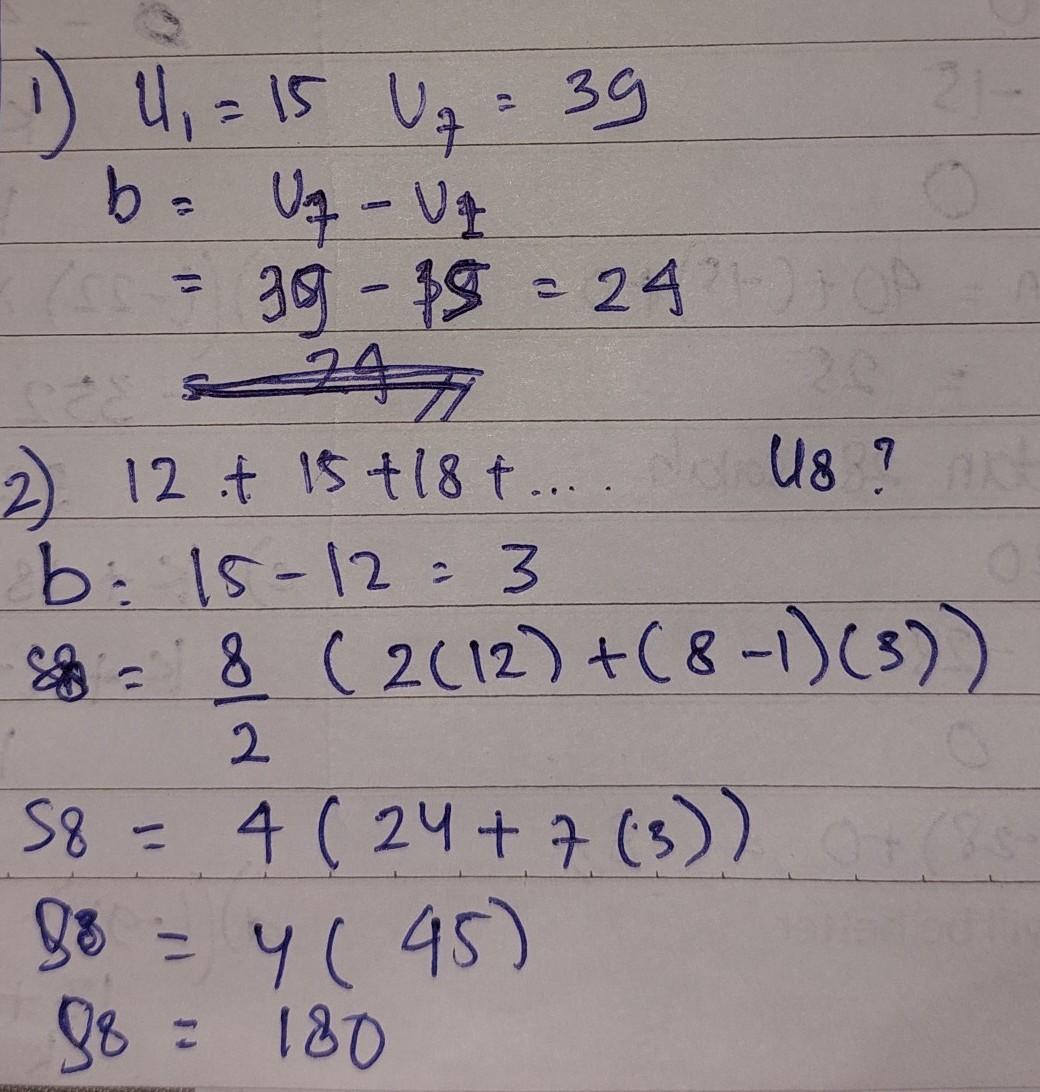 1) U₁ = 15 U₇ = 39
b = U₇ - U₁
= 39 - 15 = 24
= 24
2) 12 + 15 + 18 + ..... U8 ?
b = 15 - 12 = 3
S8 = 8/2 (2(12) + (8 - 1)(3))
S8 = 4 (24 + 7 (3))
S8 = 4 ( 45)
S8 = 180